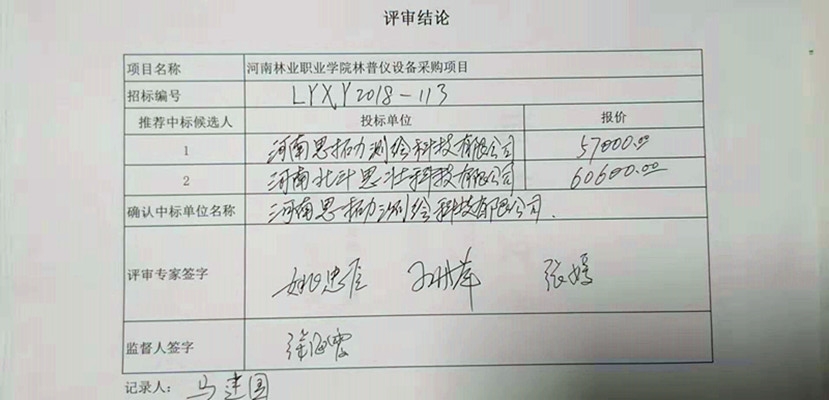 评审结论
项目名称 河南林业职业学院林普仪设备采购项目
招标编号 LYXY2018-113
推荐中标候选人 投标单位 报价
1 河南思拓力测绘科技有限公司 57000.00
2 河南北斗思壮科技有限公司 60600.00
确认中标单位名称 河南思拓力测绘科技有限公司.
评审专家签字
监督人签字
记录人: 马建国